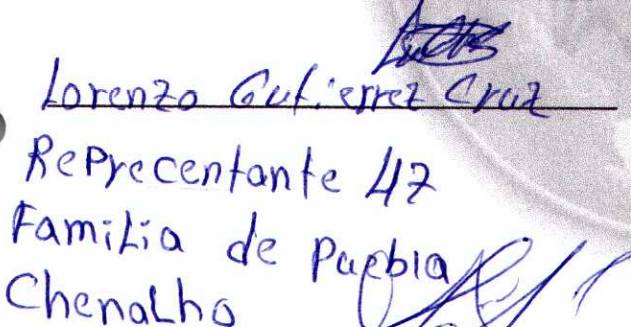 Lorenzo Gutierrez Cruz
Reprecentante 47
Familia de Puebla
Chenalho